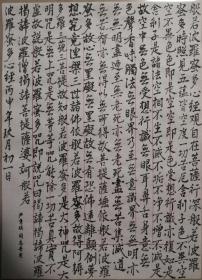 般若波羅蜜多心經觀自在菩薩行深般若波羅
蜜多時照見五蘊皆空度一切苦厄舍利子色不異
空空不異色色即是空空即是色受想行識亦復如是
舍利子是諸法空相不生不滅不垢不淨不增不減是
故空中無色無受想行識無眼耳鼻舌身意無
色聲香味觸法無眼界乃至無意識界無無明亦
無無明盡乃至無老死亦無老死盡無苦集滅道
無智亦無得以無所得故菩提薩埵依般若波羅
蜜多故心無罣礙無罣礙故無有恐怖遠離顛倒夢
想究竟涅槃三世諸佛依般若波羅蜜多故得阿耨
多羅三藐三菩提故知般若波羅蜜多是大神咒是大
明咒是無上咒是無等等咒能除一切苦真實不
虛故說般若波羅蜜多咒即說咒曰揭諦揭諦
波羅揭諦波羅僧揭諦菩提薩婆訶般若
波羅蜜多心經丙申年玖月初一日